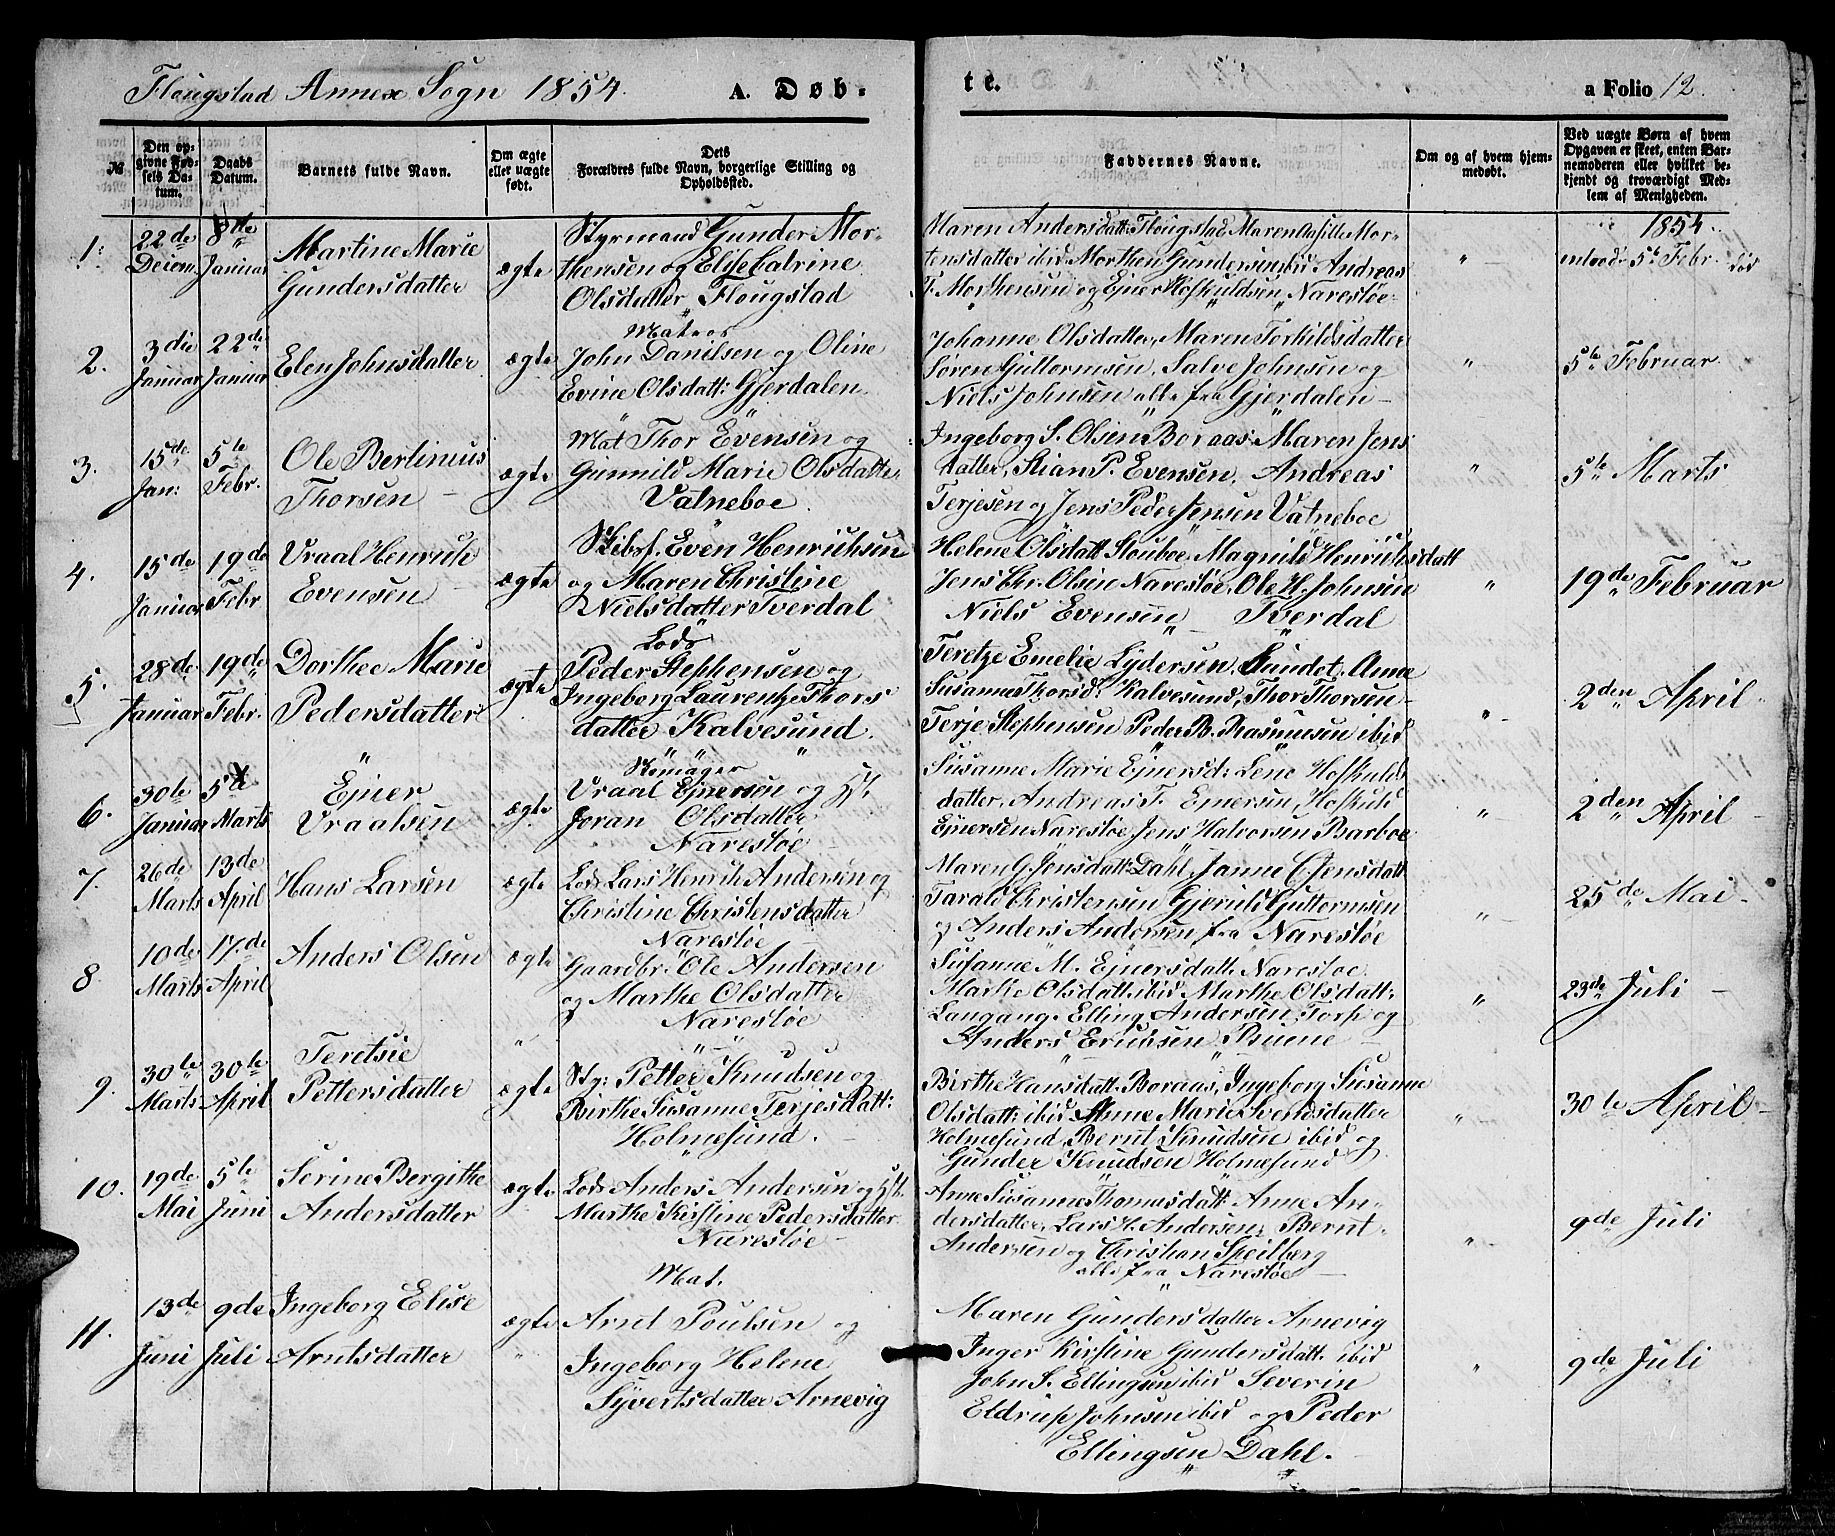 Flougstad Annex Sogn 1854. A. Døb-
te. a Folio 12.
№
Den op-
givne Fød-
sels Da-
tum.
Daabs
Datum.
Barnets fulde Navn.
Om ægte
eller uægte
født.
Dets
Forældres fulde Navn, borgerlige Stilling og
Opholdssted.
Faddernes Navne.
Om og af hvem hjem-
medøbt.
Ved uægte Børn af hvem
Opgaven er skeet, enten Bar-
nemoderen eller hvilket be-
kjendt og troværdigt Med-
lem af Menigheden.
1.
22de
Decem.
8de
Januar
Martine Marie
Gundersdatter
ægte
Styrmand Gunder Mor-
thensen og Elise Catrine
Olsdatter Flougstad
Maren Andersdatt. Flougstad Maren Mor-
tensdatter ibid Morthen Gundersen ibid Andreas
T. Morthensen og Ejner Hofkuldsen Narestøe
"
1854.
5te Febr.
2.
3die
Januar
22de
Januar
Elen Johnsdatter
ægte
Matros
John Danilsen og Oline
Evine Olsdatt: Gjerdalen
Johanne Olsdatter, Maren Torkildsdatter
Søren Guttormsen, Salve Johnsen og
Niels Johnsen alle fra Gjerdalen
"
5te Februar
3.
15de
Jan:
5te
Febr.
Ole Bertinius
Thorsen
ægte
Mat Thor Evensen og
Gunnild Marie Olsdatter
Vatneboe
Ingeborg S. Olsen Boraas, Maren Jens
datter, Stian P. Evensen, Andreas
Terjesen og Jens Peder Jensen Vatneboe
"
5te Marts
4.
15de
Januar
19de
Febr
Vraal Henrich
Evensen
ægte
Skibsf. Even Henrichsen
og Maren Christine
Nielsdatter Tverdal
Helene Olsdatt Stouboe, Magnild Henrichsdatt
Jens Chr. Olsen Narestøe, Ole H. Johnsen
Niels Evensen Tverdal
"
19de Februar
5.
28de
Januar
19de
Febr.
Dorthee Marie
Pedersdatter
ægte
Lods
Peder Stephensen og
Ingeborg Laurentze Thors
datter Kalvesund.
Teretze Emelie Lydersen, Sundet, Anne
Susanne Thorsd: Kalvesund, Thor Thorsen
Terje Stephensen Peder B. Rasmusen ibid
"
2den April
6.
30te
Januar
5te
Marts
Ejner
Vraalsen
ægte
Skomager
Vraal Ejnersen og
Joran Olsdatter
Narestøe
Susanne Marie Ejnersd: Lene Hofkulds
datter, Andreas T. Ejnersen, Hofkuld
Ejnersen Narestøe, Jens Halvorsen Barboe
"
2den April
7.
26de
Marts
13de
April
Hans Larsen
ægte
Lods Lars Henrik Andersen og
Christine Christensdatter
Narestøe
Maren G. Jensdatt: Dahl, Janne C. Jensdatt
Tarald Christensen Gjeruld Guttormsen
og Anders Andersen fra Narestøe
"
25de Mai
8.
10de
Marts
17de
April
Anders Olsen
ægte
Gaardbr. Ole Andersen
og Marthe Olsdatter
Narestøe
Susanne M. Ejnersdatt. Narestøe
Marthe Olsdatt. ibid Marthe Olsdatt:
Langang, Elling Andersen, Torp og
Anders Ericksen Buene
"
23de Juli
9.
30te
Marts
30te
April
Teretsie
Pettersdatter
ægte
Sty: Petter Knudsen og
Birthe Susanne Terjesdatt:
Holmesund.
Birthe Hansdatt. Boraas, Ingeborg Susanne
Olsdatt: ibid Anne Marie Svendsdatter
Holmesund, Bernt Knudsen ibid og
Gunder Knudsen Holmesund
"
30te April
10.
19de
Mai
5te
Juni
Serine Bergithe
Andersdatter
ægte
Lods Anders Andersen og
Marthe Kirstine Pedersdatter
Narestøe
Anne Susanne Thomasdatt: Anne An-
dersdatter, Lars H. Andersen, Bernt
Andersen og Christian Speilberg
alle fra Narestøe
"
9de Juli
11.
13de
Juni
9de
Juli
Ingeborg Elise
Arntsdatter
ægte
Mat.
Arnt Poulsen og
Ingeborg Helene
Syvertsdatter Arnevig
Maren Gundersdatter Arnevig
Inger Kirstine Gundersdatt. ibid
John S. Ellingsen ibid Severin
Eldrup Johnsen ibid og Peder
Ellingsen Dahl.
"
9de Juli